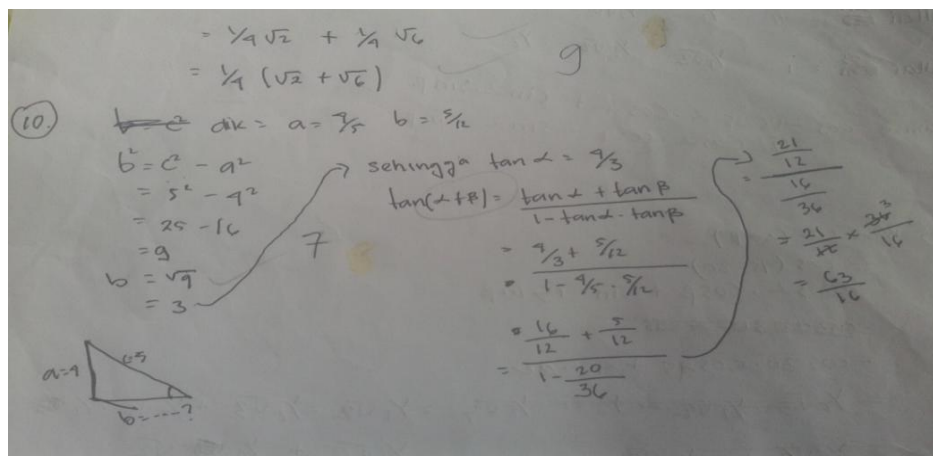 = 1/4 √2 + 1/4 √6
= 1/4 (√2 + √6)
9
10.
dik = a = 4/5 b = 5/12
b² = c² - a²
= 5² - 4²
= 25 - 16
= 9
b = √9
= 3
7
a=4
c=5
b=----?
sehingga tan α = 4/3
tan(α+β) = (tan α + tan β) / (1 - tan α · tan β)
= (4/3 + 5/12) / (1 - 4/5 · 5/12)
= (16/12 + 5/12) / (1 - 20/36)
= (21/12) / (16/36)
= 21/12 × 36 3/16
= 63/16